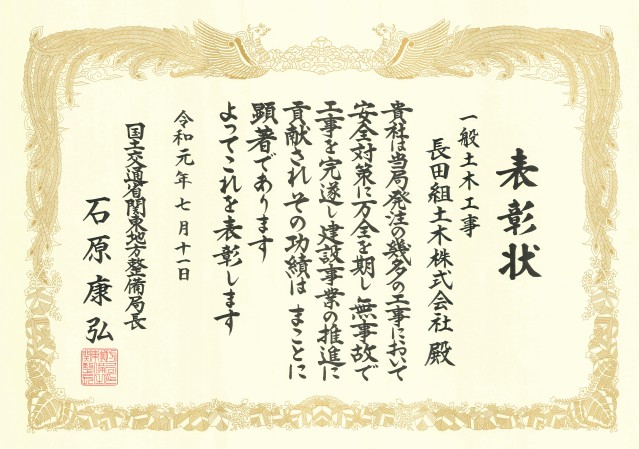 表彰状
一般土木工事
長田組土木株式会社 殿
貴社は当局発注の幾多の工事において
安全対策に万全を期し 無事故で
工事を完遂し 建設事業の推進に
貢献され その功績は まことに
顕著であります
よってこれを表彰します
令和元年七月十一日
国土交通省関東地方整備局長
石原康弘